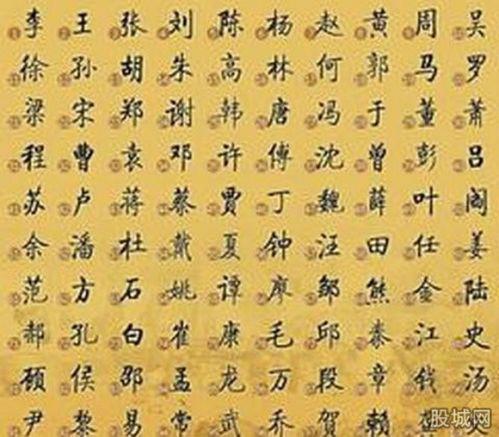 李 王 张 刘 陈 杨 赵 黄 周 吴
徐 孙 胡 朱 高 林 何 郭 马 罗
梁 宋 郑 谢 韩 唐 冯 于 董 萧
程 曹 袁 邓 许 傅 沈 曾 彭 吕
苏 卢 蒋 蔡 贾 丁 魏 薛 叶 阎
余 潘 杜 戴 夏 钟 汪 田 任 姜
范 方 石 姚 谭 廖 邹 熊 金 陆
郝 孔 白 崔 康 毛 邱 秦 江 史
顾 侯 邵 孟 龙 万 段 章 钱 汤
尹 黎 易 常 武 乔 贺 赖
股城网